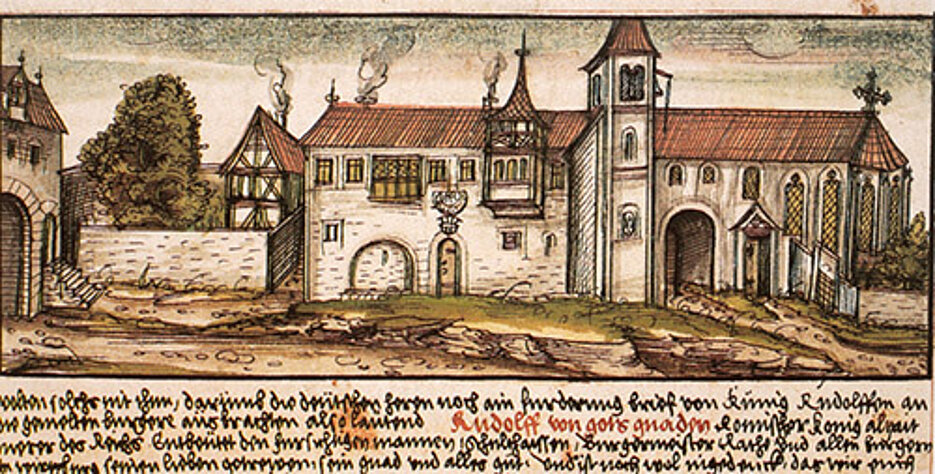 solchs mit ihm, darumb die deutschen heren noch ein furderung brieff von Künig Rudolffen an
die gemelten burger ausbrachten also lautend Rudolff von gots gnaden Romischer König altzait
merer des Reichs Entbeuttet den fursichtigen mannen, Schulthaissen, Burgermaister Raths und allen burgern
seinen lieben getrewen: sein gnad und alles gut. Und ist noch wol